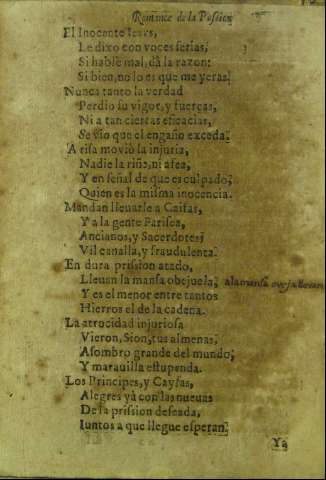 Romance de la Passion
El Inocente Iesus,
Le dixo con voces serias,
Si hablé mal, dà la razon:
Si bien, no lo es que me yeras.
Nunca tanto la verdad
Perdio su vigor, y fuerças,
Ni a tan ciertas eficacias,
Se vio que el engaño exceda.
A risa moviò la injuria,
Nadie la riñe, ni afea,
Y en señal de que es culpado,
Quien es la misma inocencia.
Mandan lleuarle a Caifas,
Y a la gente Farisea,
Ancianos, y Sacerdotes,
Vil canalla, y fraudulenta.
En dura prission atado,
Lleuan la mansa obejuela, a la mansa oveja lleuan
Y es el menor entre tantos
Hierros el de la cadena.
La atrocidad injuriosa
Vieron, Sion, tus almenas,
Asombro grande del mundo,
Y marauilla estupenda.
Los Principes, y Cayfas,
Alegres yà con las nueuas
De la prission deseada,
Iuntos a que llegue esperan.
Ya